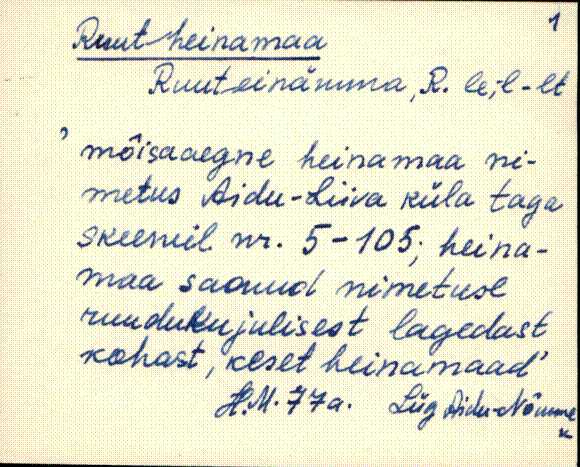 1
Ruut-heinamaa
Ruuteinämma, R. le; l-lt
'mõisaaegne heinamaa ni-
metus Aidu-Liiva küla taga
skeemil nr. 5-105; heina-
maa saanud nimetuse
ruudukujulisest lagedast
kohast, keset heinamaad'
H.M. 77a. Lüg Aidu-Nõmme
k